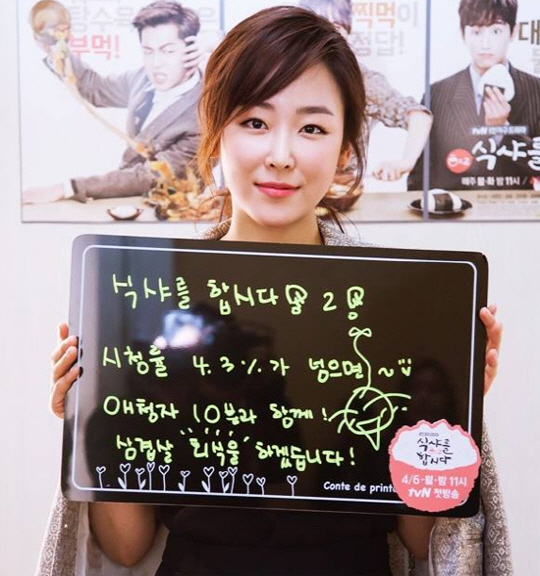 부먹!
찍먹이
정답!
tvN
식샤를
매주 월·화 밤 11시
식샤를 합시다 2
시청률 4.3%가 넘으면~
애청자 10분과 함께!
삼겹살 "회식을" 하겠습니다!
Conte de printemps
식샤를
합시다
4/6·월·밤 11시
tvN 첫방송